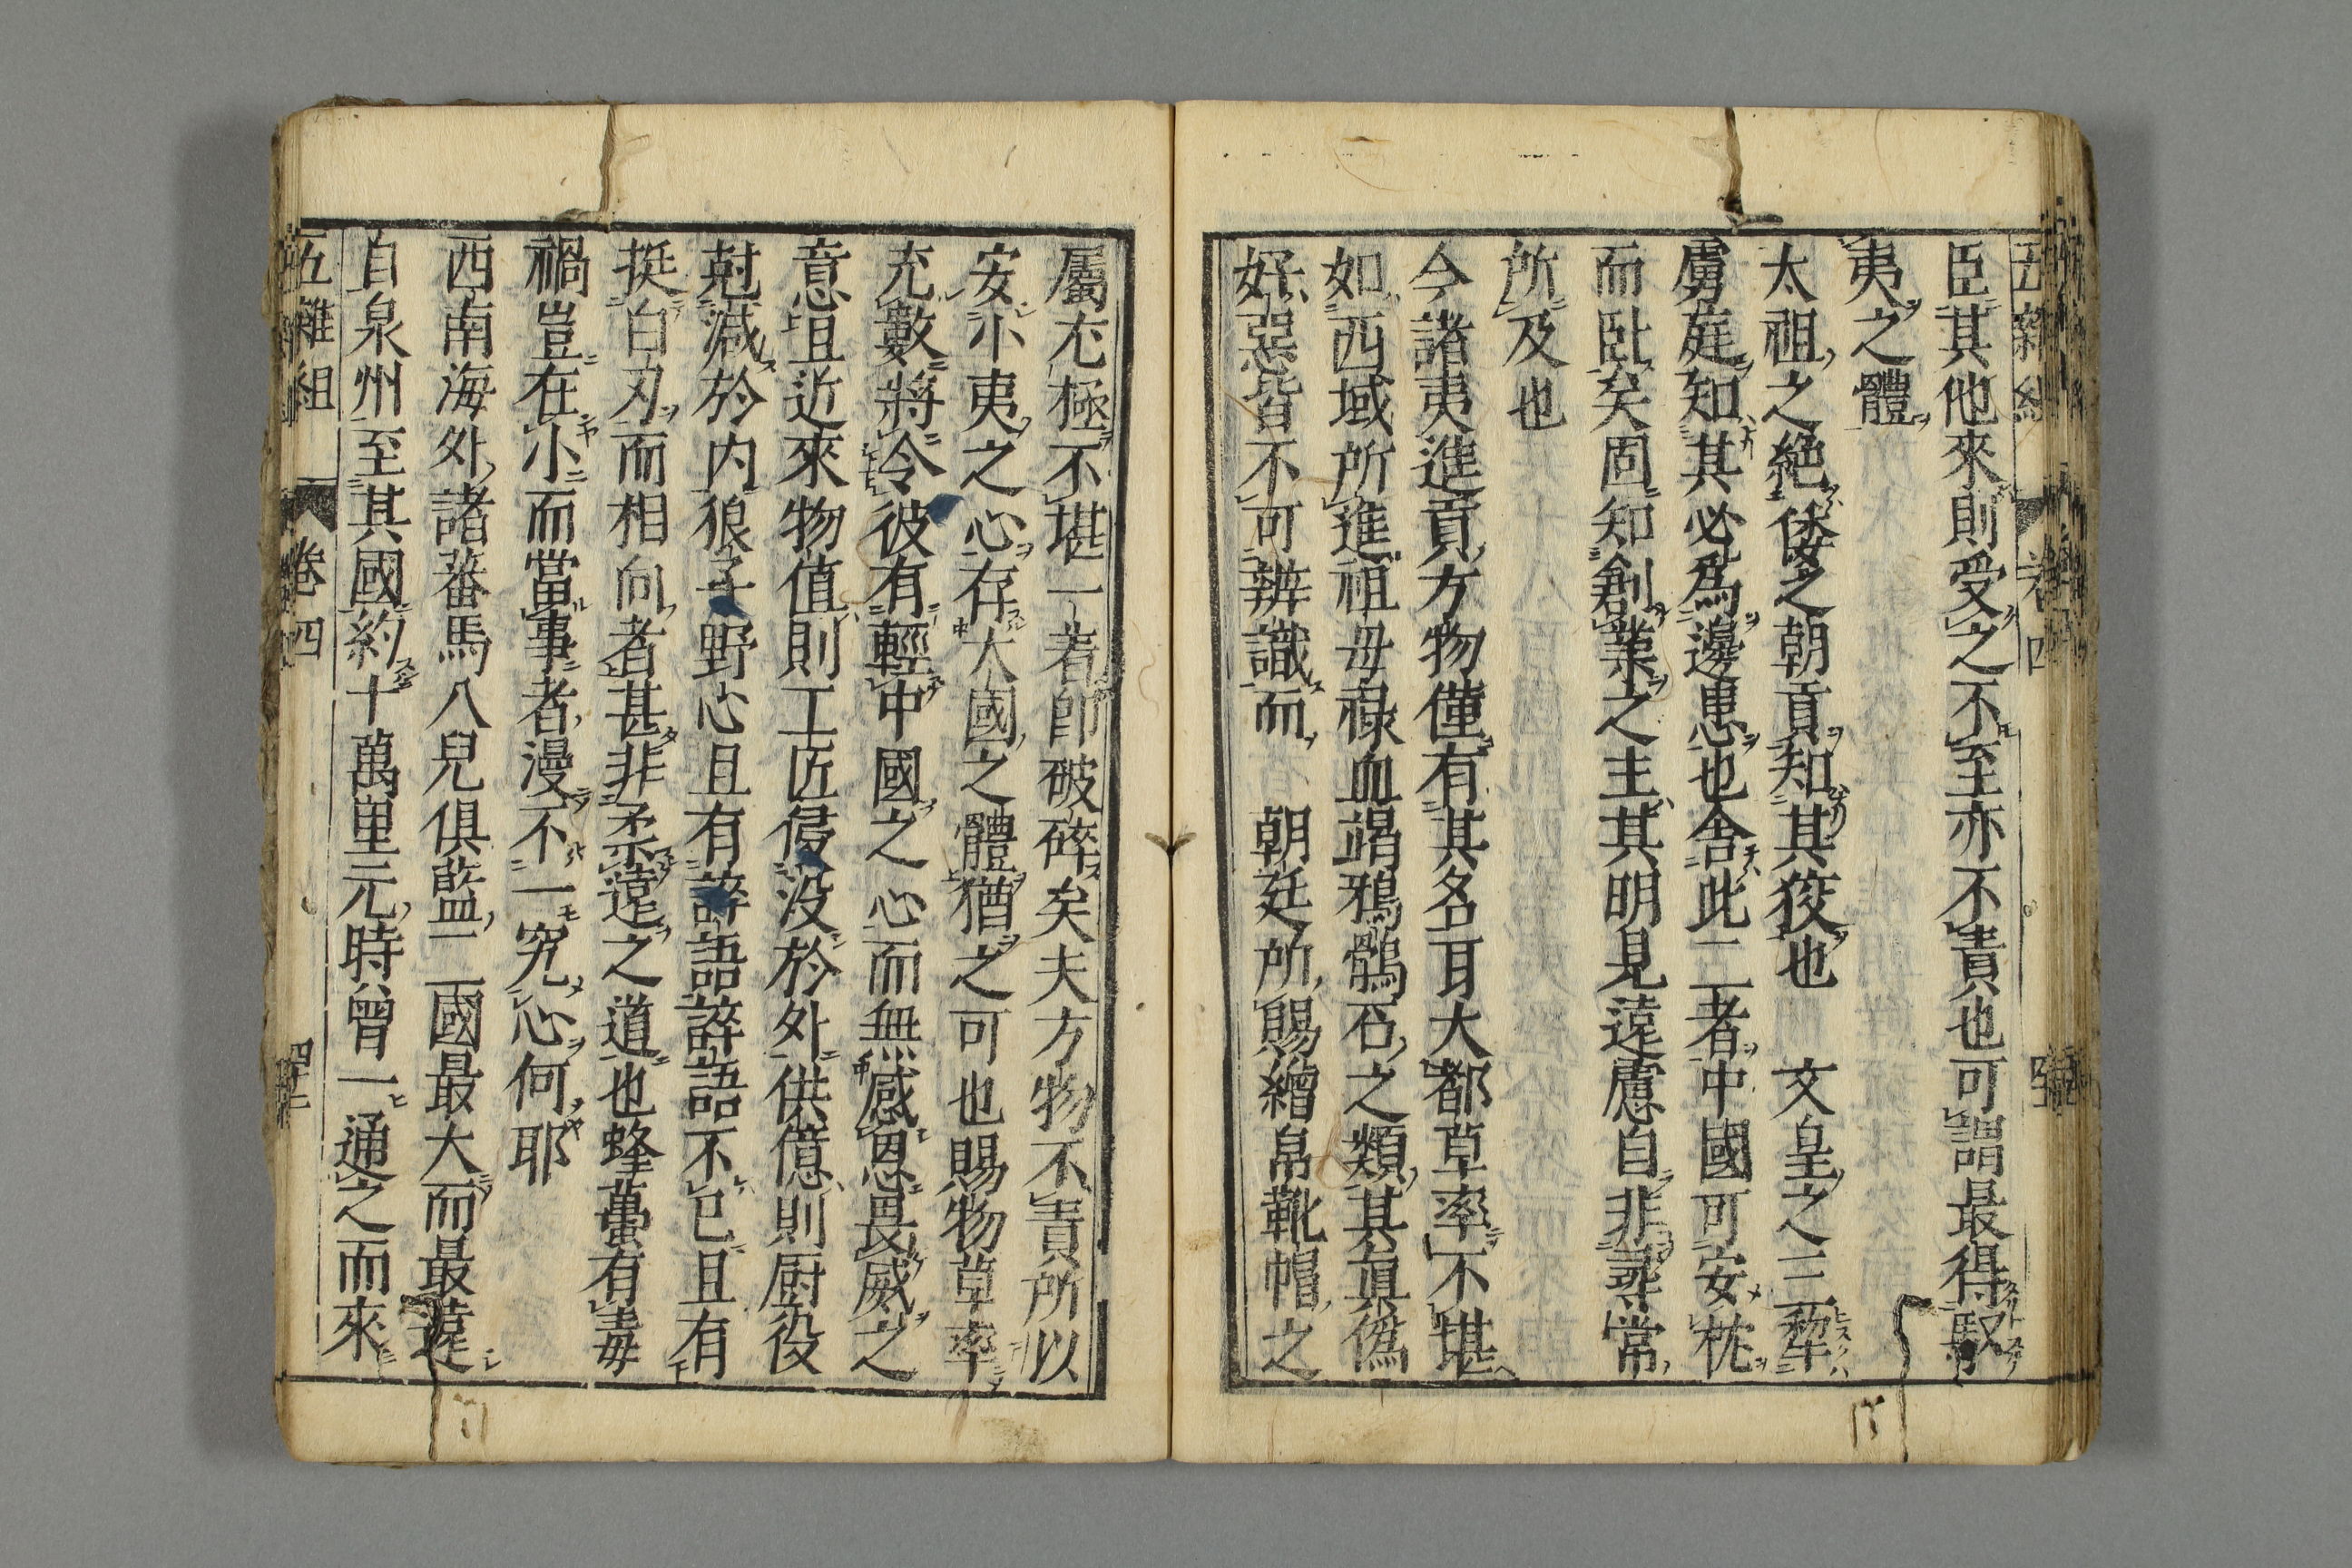 臣其他來則受之不至亦不責也可謂最得馭
夷之體
太祖之絶倭之朝貢知其狡也 文皇之三犂
虜庭知其必爲邊患也舍此二者中國可安枕
而臥矣固知創業之主其明見遠慮自非尋常
所及也
今諸夷進貢方物僅有其名耳大都草率不堪
如西域所進祖母祿血竭鴉鶻石之類其眞僞
好惡皆不可辨識而 朝廷所賜繒帛靴帽之
屬尤極不堪一着即破碎矣夫方物不責所以
安小夷之心存大國之體猶之可也賜物草率
充數將令彼有輕中國之心而無感恩畏威之
意且近來物值則工匠侵没於外供億則厨役
尅減於内狼子野心且有誶語誶語不已且有
挺白刃而相向者甚非柔遠之道也蜂蠆有毒
禍豈在小而當事者漫不一究心何耶
西南海外諸蕃馬八兒俱藍二國最大而最遠
自泉州至其國約十萬里元時曾一通之而來
五雜組 卷四 四十二